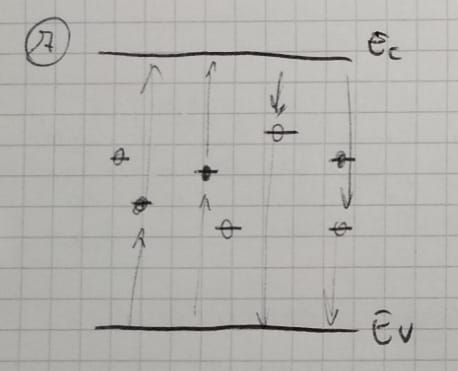 Ec
Ev